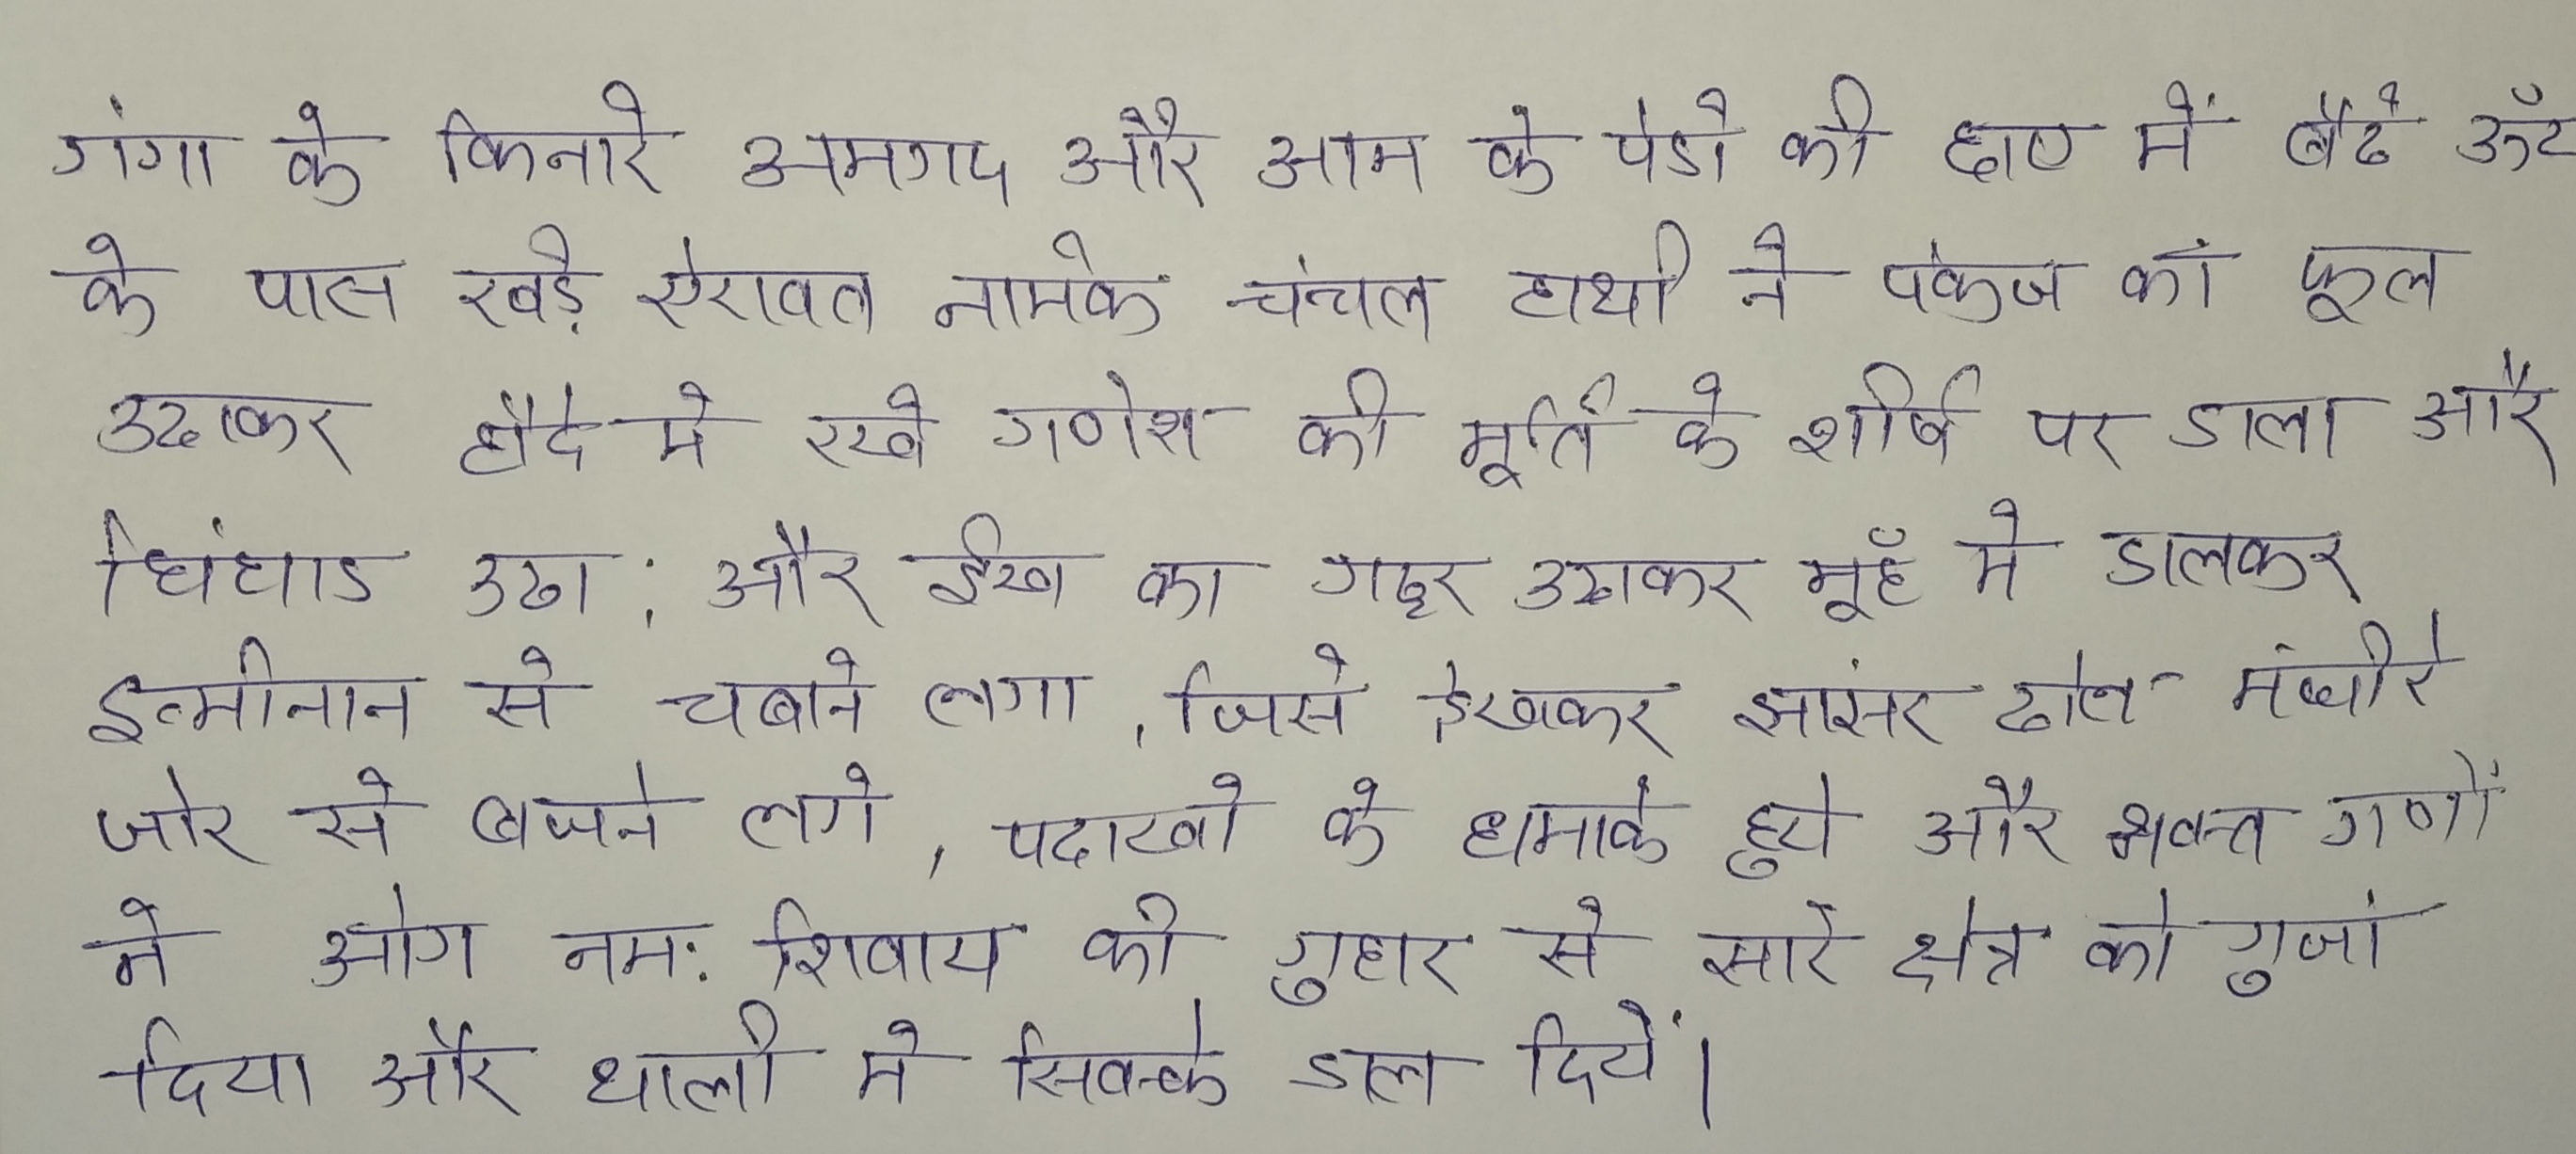 गंगा के किनारे अमगद और आम के पेडो की छाए में बैठे ऊँट
के पास खड़े ऐरावत नामके चंचल हाथी ने पंकज कां फूल
उठाकर हौदे मे रखे गणेश की मूर्ति के शीर्ष पर डाला और
घिंघाड उठा ; और ईख का गट्टर उठाकर मूहँ मे डालकर
इत्मीनान से चबाने लगा , जिसे देखकर झांसर ढोल मंधीरे
जोर से बजने लगे , पटाखो के धमाके हुये और भक्त गणों
ने ओग नमः शिवाय की गुहार से सारे क्षेत्र को गुजां
दिया और थाली मे सिक्के डाल दियें।